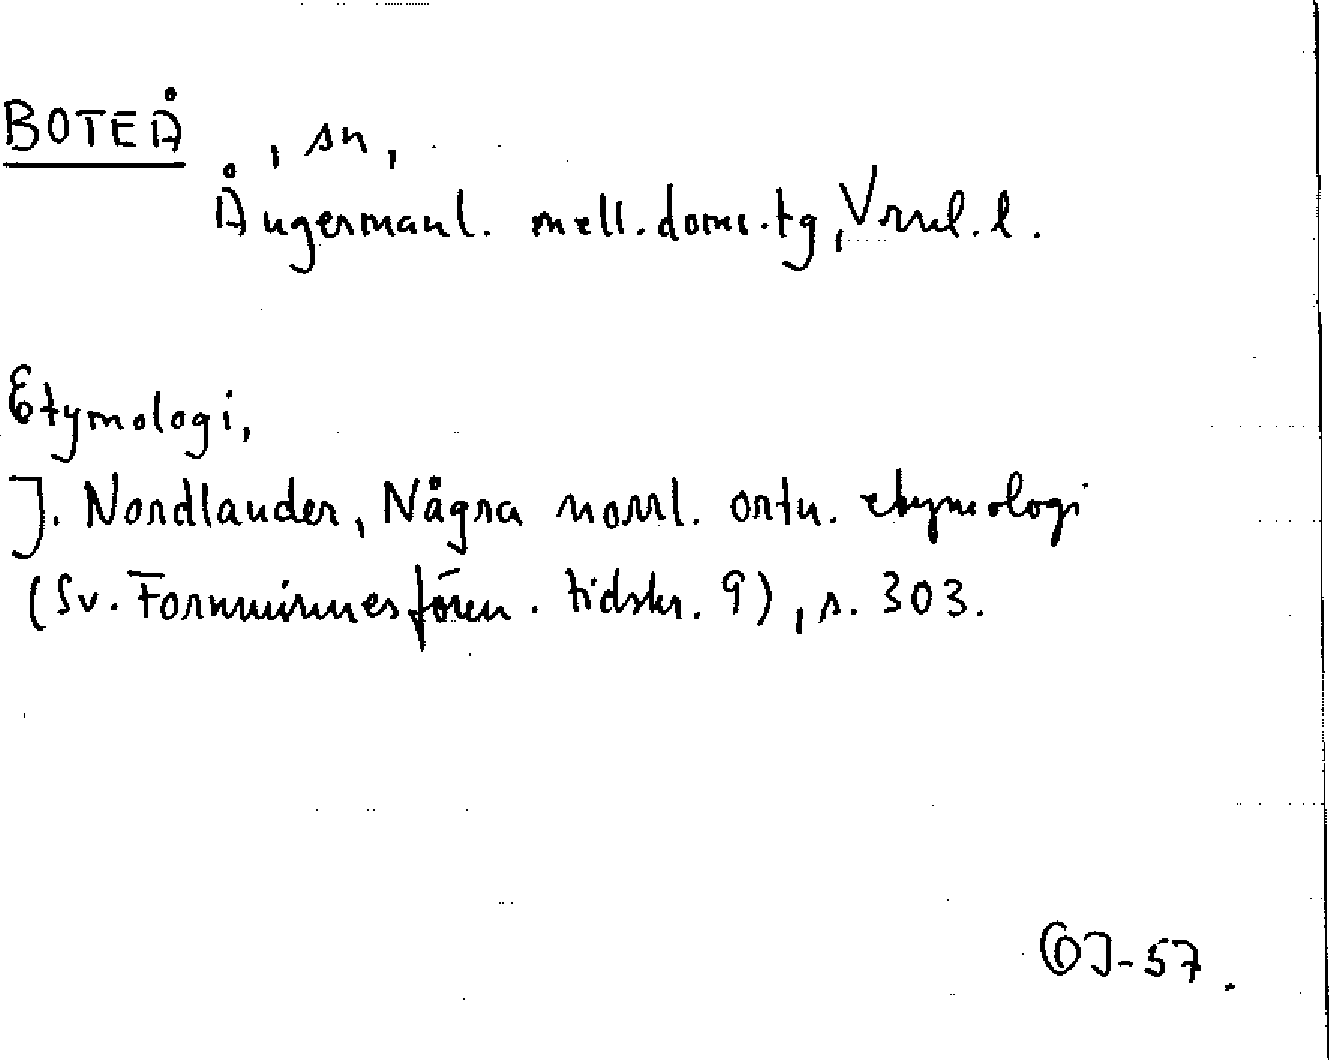 BOTEÅ, sn,
Ångermanl. mell. doms.tg, Vrnl. l.
Etymologi,
J. Nordlander, Några norrl. ortn. etymologi
(Sv. Fornminnesfören. tidskr. 9), s. 303.
OJ-57.